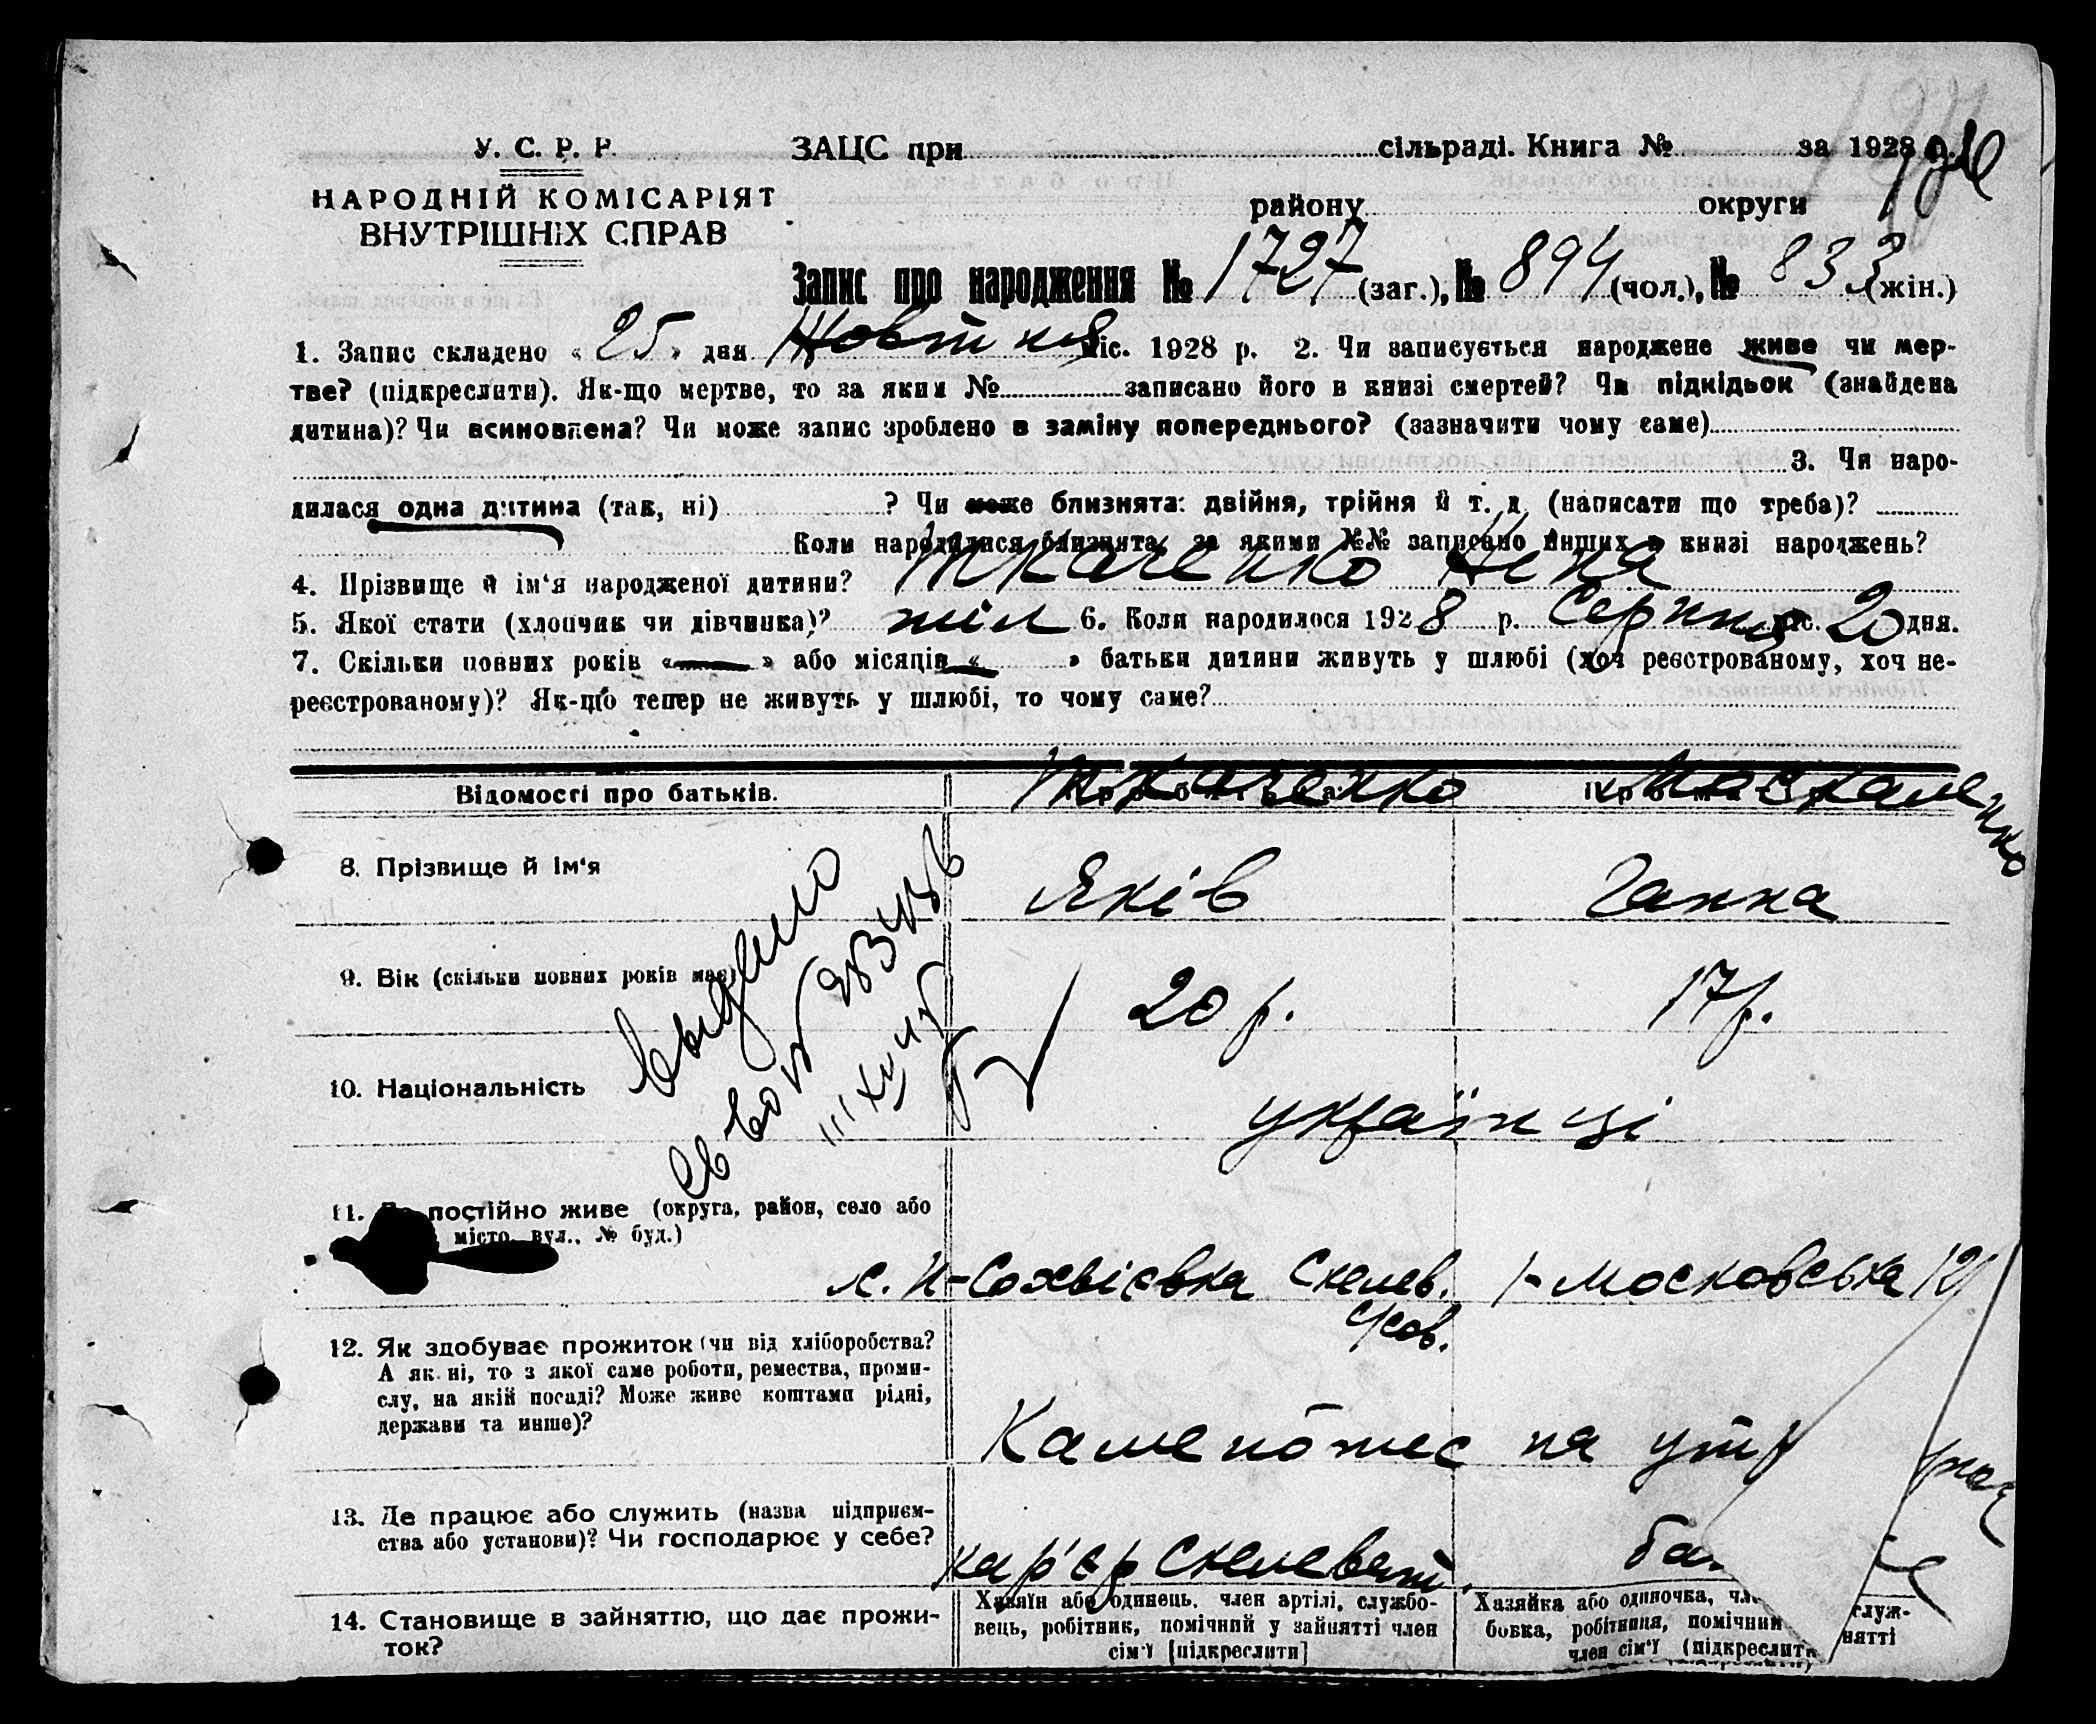 У. С. Р. Р.
ЗАЦС при сільраді. Книга № за 1928 р.
НАРОДНІЙ КОМІСАРІЯТ
ВНУТРІШНІХ СПРАВ
району округи
Запис про народження № 1727 (заг.), № 894 (чол.), № 833 (жін.)
1. Запис складено « 25 » дня Жовтня міс. 1928 р. 2. Чи записується народжене живе чи мер-
тве? (підкреслити). Як-що мертве, то за яким № записано його в книзі смертей? Чи підкідьок (знайдена
дитина)? Чи всиновлена? Чи може запис зроблено в заміну попереднього? (зазначити чому саме)
3. Чи наро-
дилася одна дитина (так, ні) ? Чи може близнята: двійня, трійня й т. д. (написати що треба)?
Коли народилися близнята, за якими №№ записано инших в книзі народжень?
4. Прізвище й ім‘я народженої дитини? Ткаченко Ніна
5. Якої стати (хлопчик чи дівчинка)? жін 6. Коли народилося 1928 р. Серпня міс. 20 дня.
7. Скільки повних років « » або місяців « » батьки дитини живуть у шлюбі (хоч реєстрованому, хоч не-
реєстрованому)? Як-що тепер не живуть у шлюбі, то чому саме?
Відомості про батьків.
Ткаченко Москаленко
8. Прізвище й ім‘я Яків Ганна
9. Вік (скільки повних років має) 20 р. 17 р.
10. Національність українці
11. Де постійно живе (округа, район, село або
місто, вул., № буд.)
Скелев. 1-Московська
12. Як здобуває прожиток (чи від хліборобства?
А як ні, то з якої саме роботи, ремества, проми-
слу, на якій посаді? Може живе коштами рідні,
держави та инше)?
Каменотес на утр
13. Де працює або служить (назва підприєм-
ства або установи)? Чи господарює у себе?
кар'єр Скелеват. ба
14. Становище в зайняттю, що дає прожи-
ток?
Хазяїн або одинець, член артілі, службо-
вець, робітник, помічний у зайнятті член
сім‘ї [підкреслити]
Хазяйка або одиночка, служ-
бовка, робітниця, помічний нятті
член сім‘ї (підкреслити)